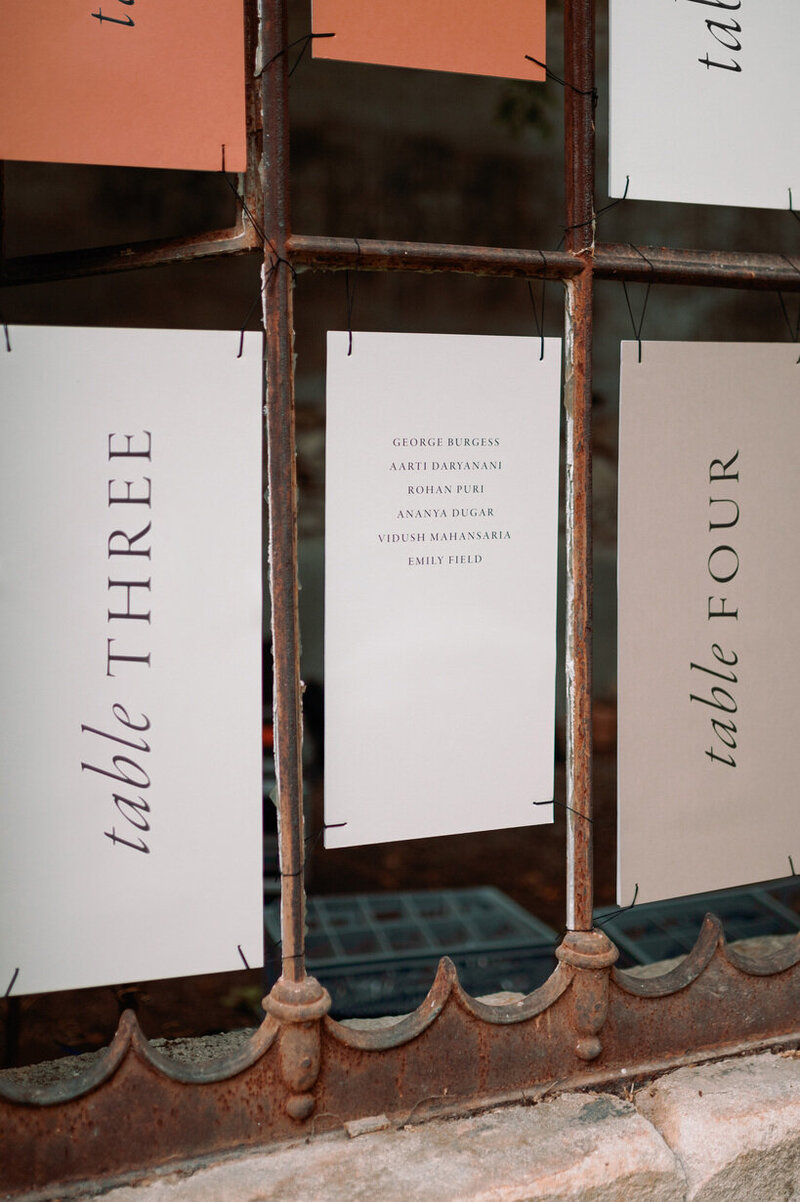 ta
tal
table THREE
GEORGE BURGESS
AARTI DARYANANI
ROHAN PURI
ANANYA DUGAR
VIDUSH MAHANSARIA
EMILY FIELD
table FOUR